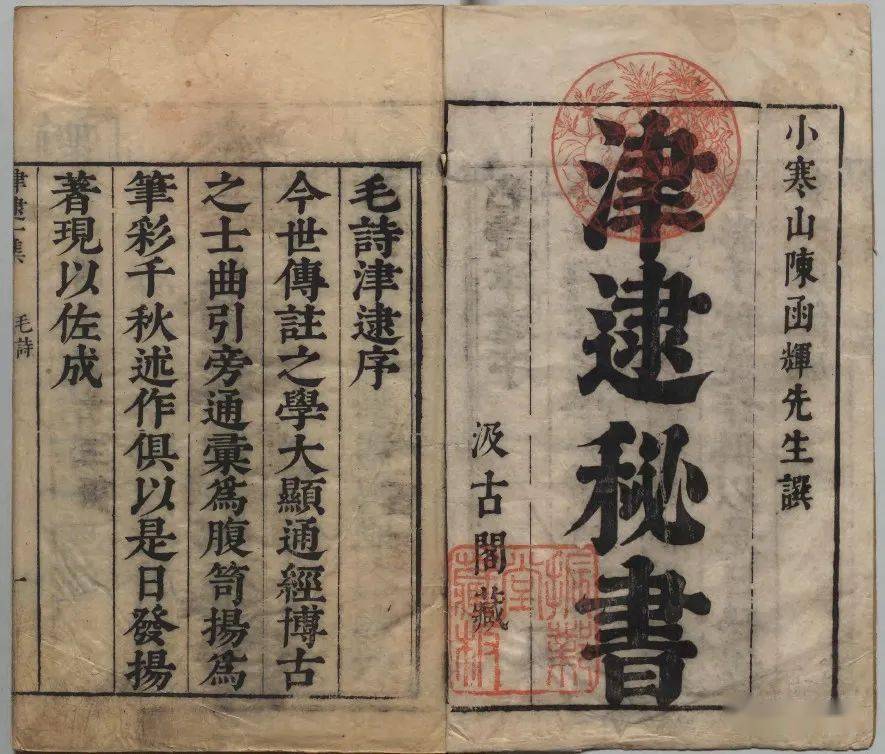 小寒山陳函輝先生譔
津逮秘書
汲古閣藏
毛詩津逮序
今世傳註之學大顯通經博古
之士曲引旁通彙爲腹笥揚爲
筆彩千秋述作俱以是日發揚
著現以佐成
津逮一集 毛詩 一